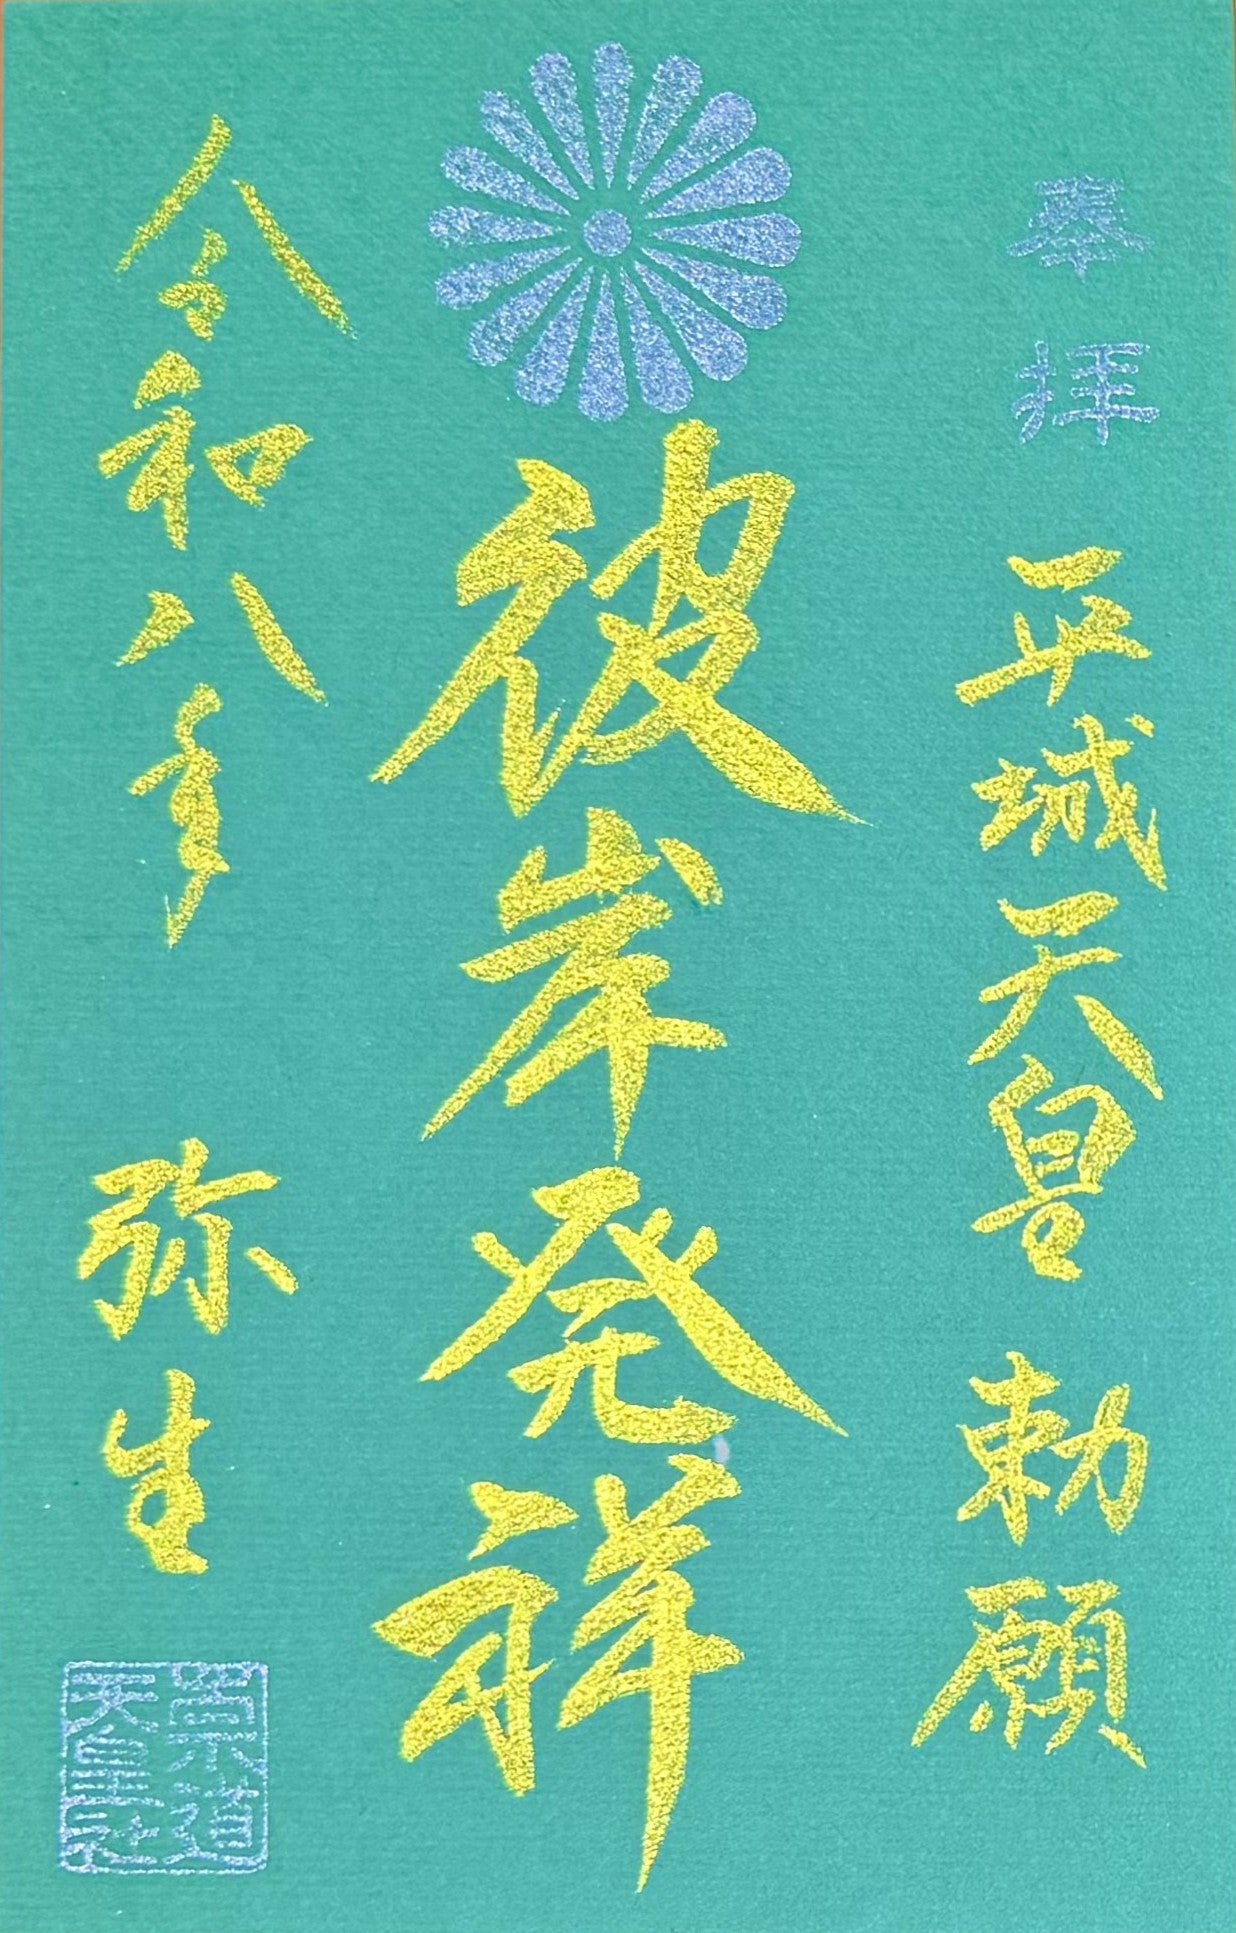 奉拝
平城天皇 勅願
彼岸発祥
令和八年 弥生
崇道
天皇社